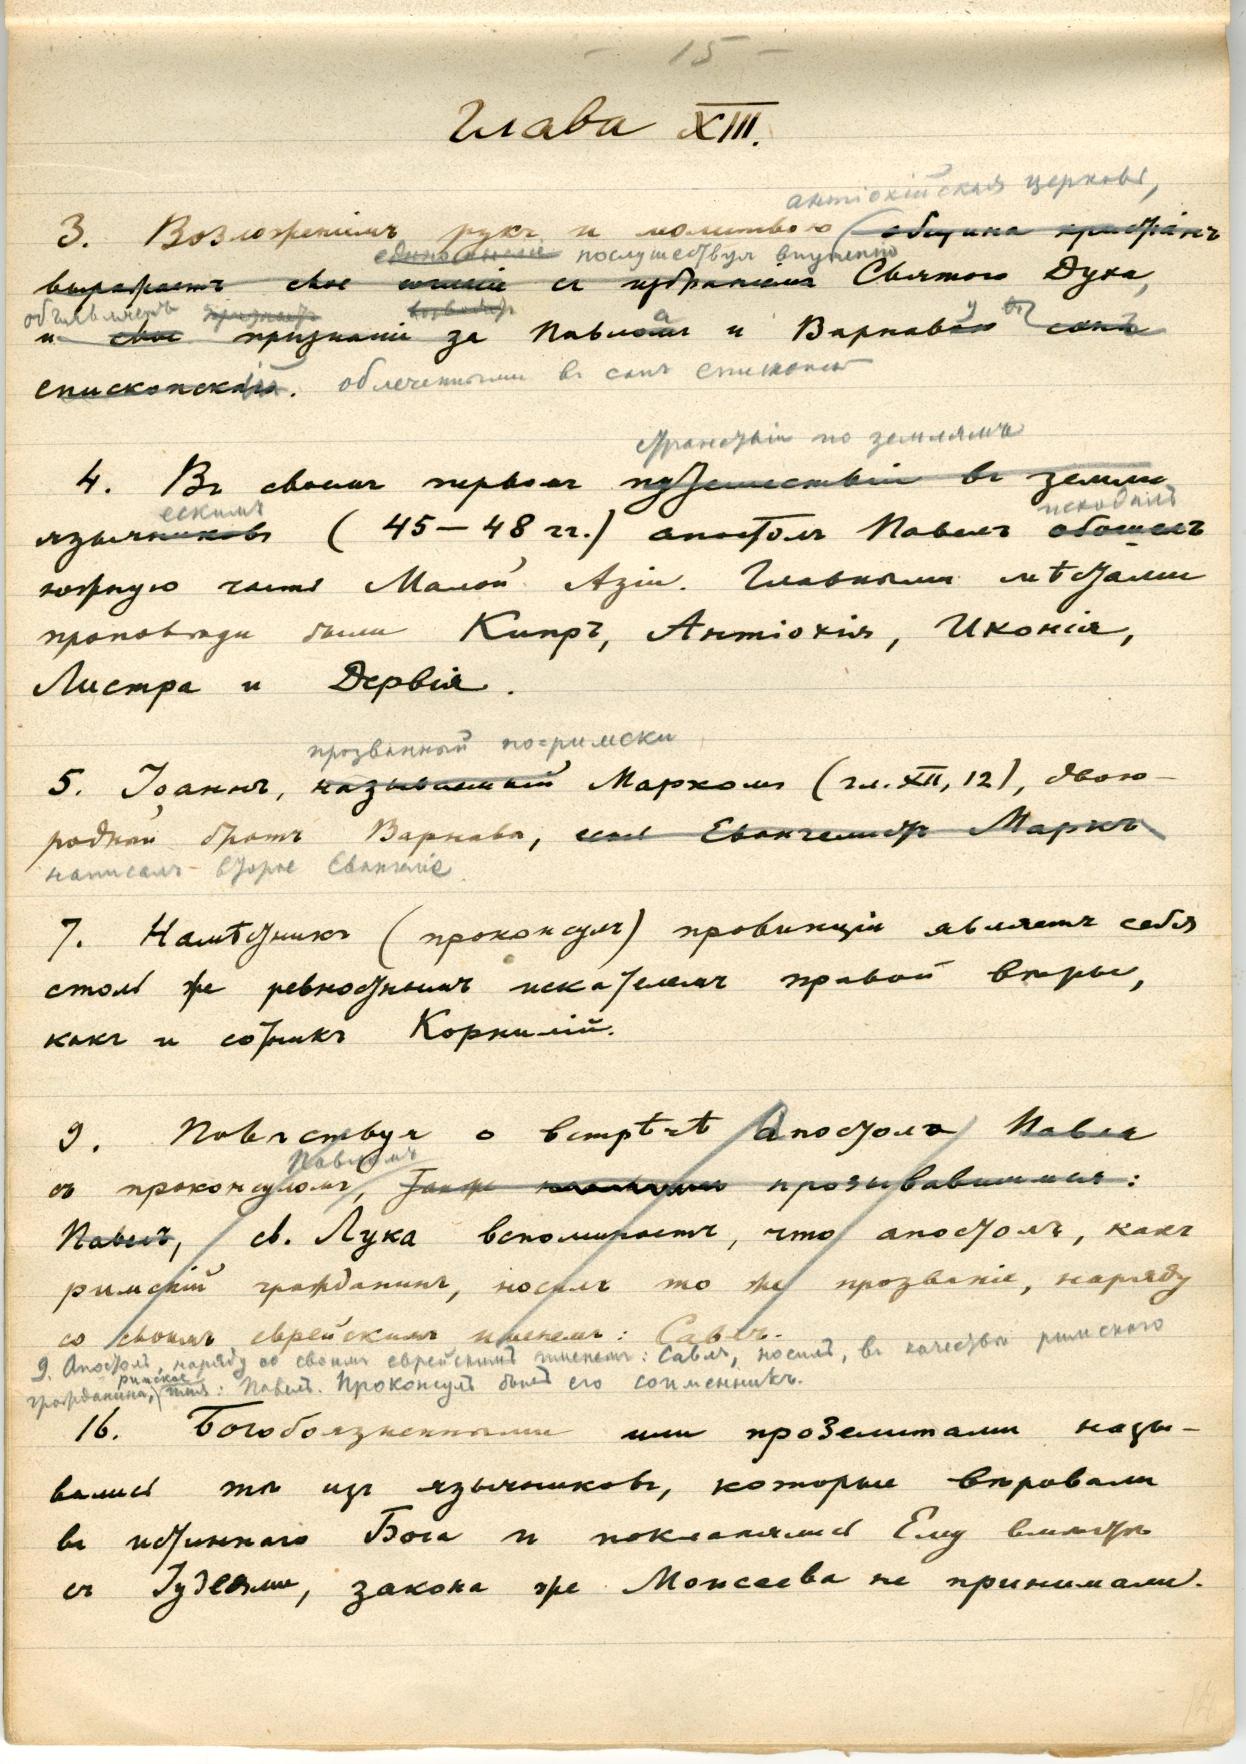 - 15 -
Глава XIII.
антіохійская церковь,
3. Возложеніемъ рукъ и молитвою община христіанъ
единомысліе послушествуя внушенію
выражаетъ свое согласіе съ избраніемъ Святого Духа,
объявляетъ
и свое признаніе за Павломъ и Варнавою санъ
епископскій. облеченными въ санъ епископа
странствіи по землямъ
4. Въ своемъ первомъ путешествіи въ земли
ескимъ исходилъ
язычниковъ (45-48 гг.) апостолъ Павелъ обошелъ
южную часть Малой Азіи. Главными мѣстами
проповѣди были Кипръ, Антіохія, Иконія,
Листра и Дервія.
прозванный по-римски
5. Іоаннъ, называемый Маркомъ (гл. XII, 12), двою-
родный братъ Варнавы, есть Евангелистъ Маркъ
написалъ второе Евангеліе
7. Намѣстникъ (проконсулъ) провинціи являетъ себя
столь же ревностнымъ искателемъ правой вѣры,
какъ и сотникъ Корнилій.
9. Повѣствуя о встрѣчѣ Апостола Павла
Павломъ
съ проконсуломъ, также прозывавшимся:
Павелъ, св. Лука вспоминаетъ, что апостолъ, какъ
римскій гражданинъ, носилъ то же прозваніе, наряду
со своимъ еврейскимъ именемъ: Савлъ.
9. Апостолъ, наряду со своимъ еврейскимъ именемъ: Савлъ, носилъ, въ качествѣ римскаго
римское
гражданина, имя: Павелъ. Проконсулъ былъ его соименникъ.
16. Богобоязненными или прозелитами назы-
вались тѣ изъ язычниковъ, которые вѣровали
въ истиннаго Бога и поклонялись Ему вмѣстѣ
съ Іудеями, закона же Моисеева не принимали.